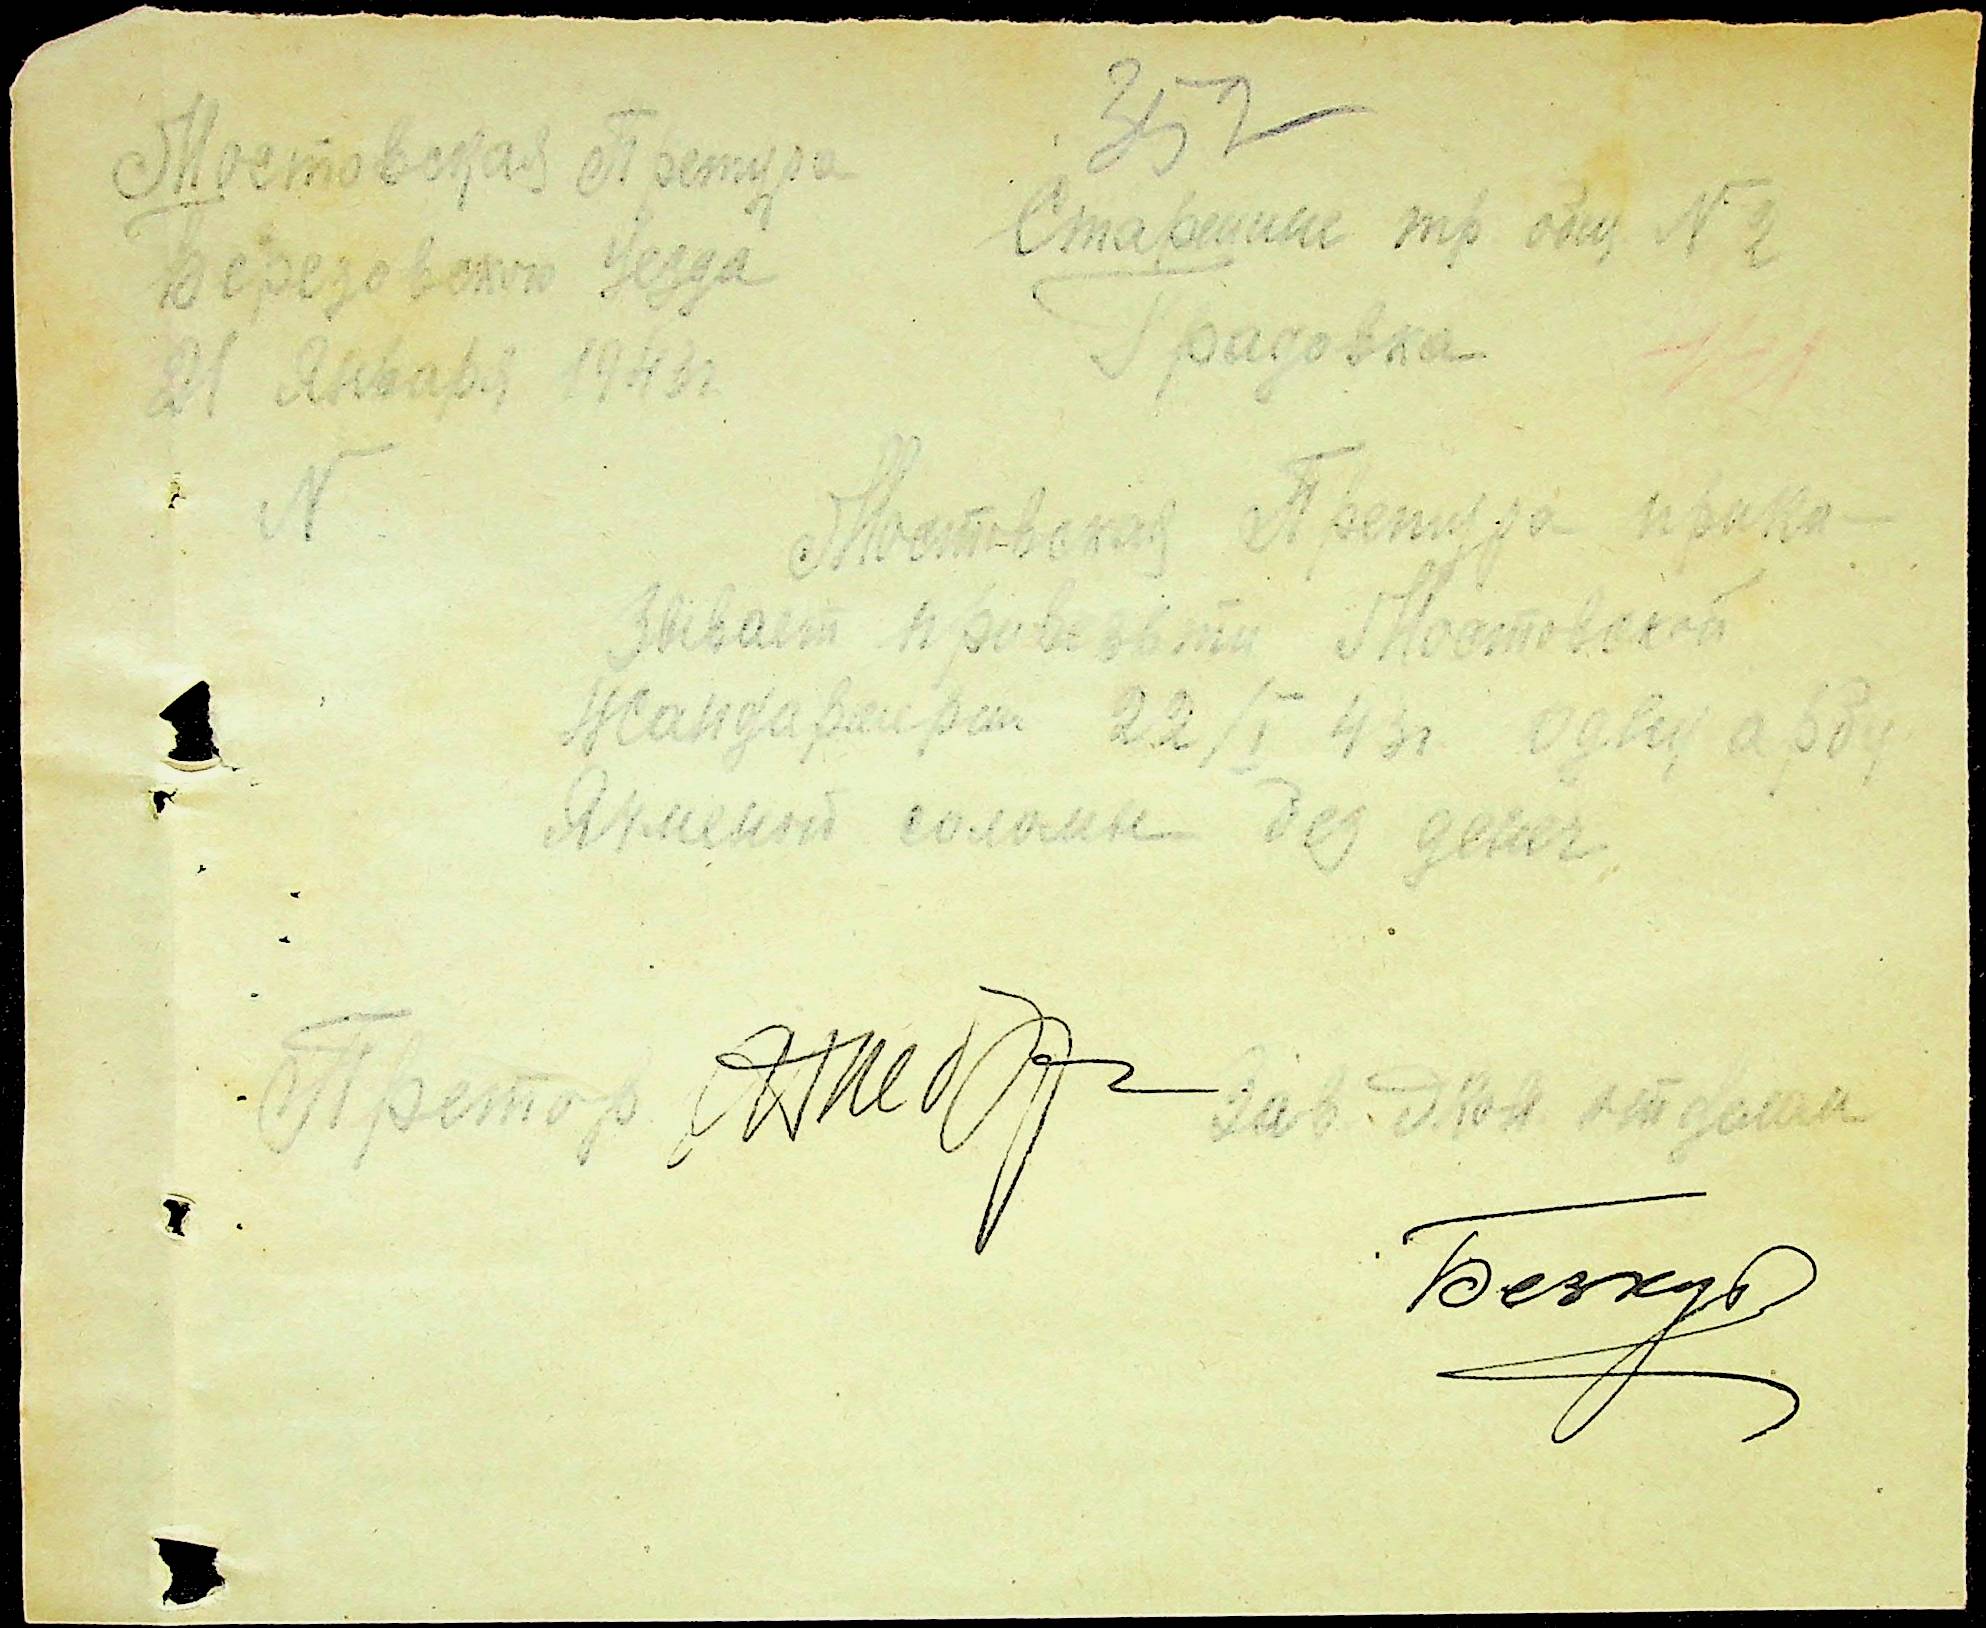 352
Мостовская Претура
Березовского Уезда
21 Января 1943г
N
Старшине тр общ N 2
Градовка
Мостовская Претура прика-
зывает привезти Мостовской
Жандармерии 22/I 43г одну арбу
Ячменой соломы без денег.
Претор
Зав. Экон. отделом